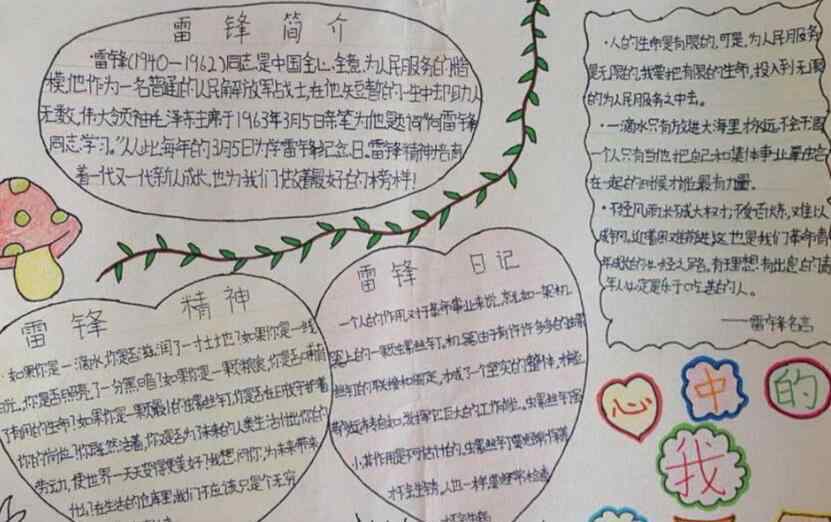 雷锋简介
·雷锋(1940—1962)同志,是中国全心全意,为人民服务的楷
模,他作为一名普通的人民解放军战士,在他短暂的一生中却助人
无数,伟大领袖毛泽东主席于1963年3月5日亲笔为他题词"向雷锋
同志学习。"从此每年的3月5日为学雷锋纪念日。雷锋精神培育
着一代又一代新人成长,也为我们做着最好的榜样!
·人的生命是有限的,可是,为人民服务
是无限的,我要把有限的生命,投入到无限
的为人民服务之中去。
·一滴水只有放进大海里才永远不会干涸
一个人只有当他把自己和集体事业融合
在一起的时候才能最有力量。
·不经风雨,长不成大树;不受百炼,难以
成钢。迎着困难前进,这也是我们革命青
年成长的必经之路。有理想有出息的青
年人必定是乐于吃苦的人。
——雷锋名言
雷锋精神
·如果你是一滴水,你是否滋润了一寸土地?如果你是一线
阳光,你是否照亮了一分黑暗?如果你是一颗粮食,你是否哺育
了有用的生命?如果你是一颗最小的螺丝钉,你是否永远守着
你的岗位?你既然活着,你是否为了未来的人类生活付出你的
劳动,使世界一天天变得更美好?我想问你,为未来带来
在生活的仓库里,我们不应该只是个无穷
雷锋日记
一个人的作用,对于革命事业来说,就如一架机
器上的一颗螺丝钉。机器由于有许许多多的螺丝
钉的联接和固定,才成了一个坚实的整体,才能
运转自如,发挥它巨大的工作能。螺丝钉虽
小,其作用是不可估计的。螺丝钉要经常保养
才不会生锈。人也一样,要经常检查
才不会生锈
心中的
我